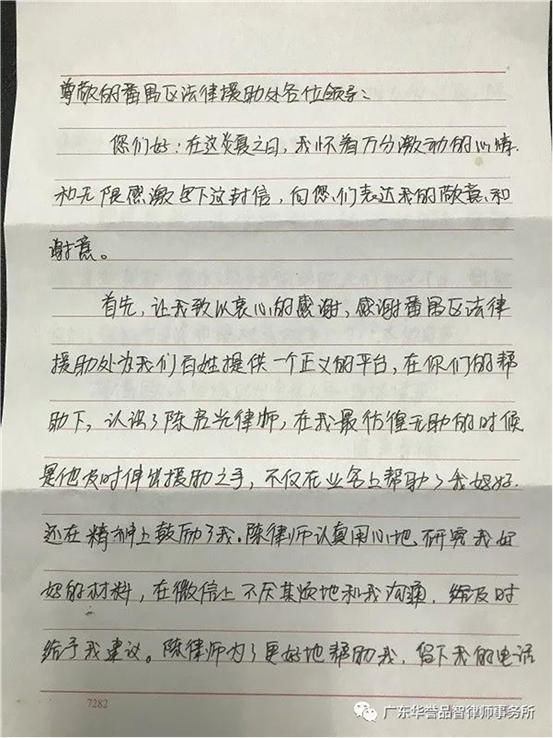 尊敬的番禺区法律援助处各位领导：
您们好：在这炎夏之日，我怀着万分激动的心情
和无限感激写下这封信，向您们表达我的敬意和
谢意。
首先，让我致以衷心的感谢，感谢番禺区法律
援助处为我们百姓提供一个正义的平台，在你们的帮
助下，认识了陈启光律师，在我最彷徨无助的时候
是他及时伸出援助之手，不仅在业务上帮助了我妈妈.
还在精神上鼓励了我。陈律师认真用心地研究我妈
妈的材料，在微信上不厌其烦地和我沟通，给及时
给予我建议。陈律师为了更好地帮助我，留下我的电话
7282
广东华誉品智律师事务所